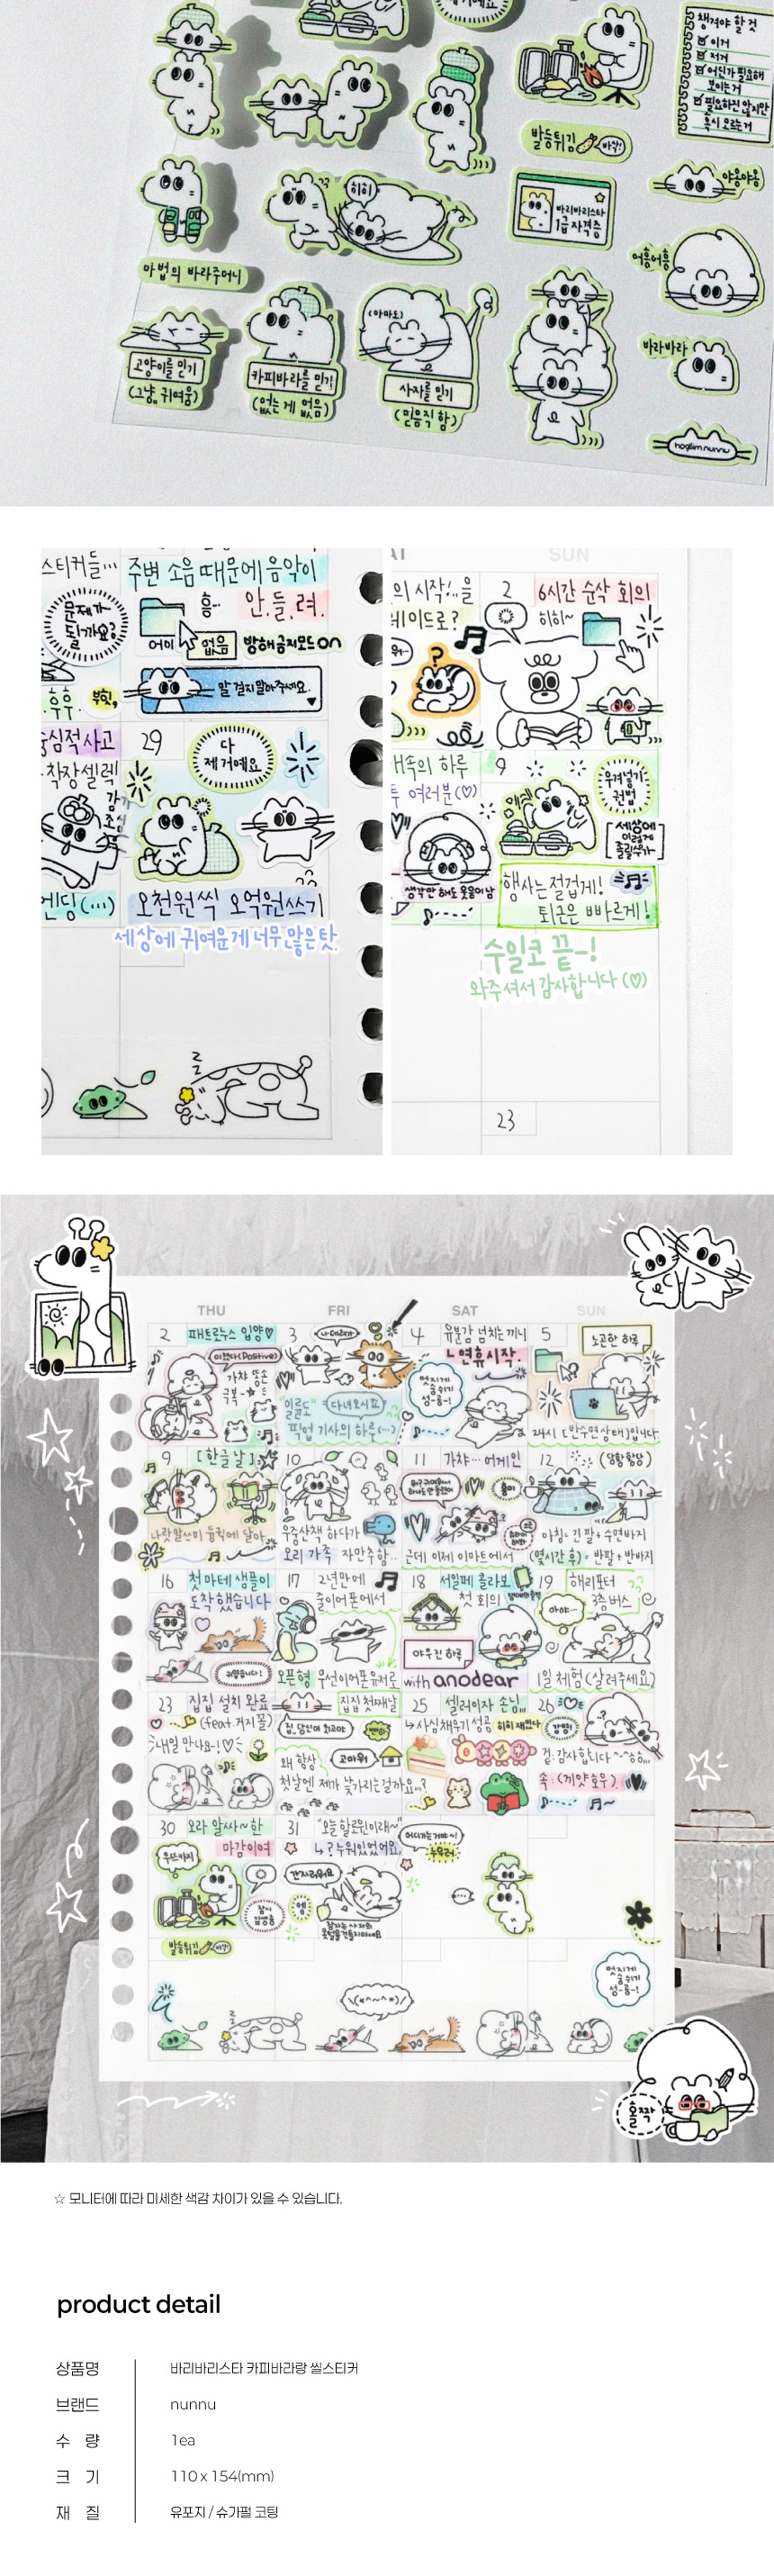 챙겨야 할 것
이거
저거
어딘가 필요해
보이는 거
필요하진 않지만
혹시 모르는거
발등튀김
바삭!
야옹야옹
히히
바리바리스타
1급 자격증
어흥어흥
마법의 바라주머니
(아마도)
바라바라
고양이를 믿기
(그냥 귀여움)
카피바라를 믿기
(없는 게 없음)
사자를 믿기
(믿음직함)
hoglim.nunnu
스티커들...
주변 소음 때문에 음악이
흠..
안.들.려.
문제가
될까요?
어미
없음
방해금지모드 on
후후
부힛,
말 걸지 말아주세요.
심적사고
29
다
제거예요
착장셀렉
엔딩(...)
오천원씩 오억원쓰기
세상에 귀여운게 너무 많은 탓
SUN
의 시작!..을
2
6시간 순삭 회의
레이드로?
히히~
?
속의 하루
9
여러분(♡)
우겨넣기
권법
[세상에
이렇게
졸릴수가]
생각만 해도 웃음이 남
행사는 절겁게!
퇴근은 빠르게!
수일코 끝-!
와주셔서 감사합니다 (♡)
23
THU
FRI
SAT
SUN
2
패트로누스 입양♡
3
4
유분감 넘치는 끼니
5
노곤한 하루
연휴시작!
이것이(Positive)
멋지게
숨쉬기
성-공-!
"이름도"
(다녀오시죠)
픽업 기사의 하루(...)
24시 [반수면상태]입니다.
9
[한글날]
10
11
가챠... 어게인
12
(당황함)
나랏말싸미 듕귁에 달아
우중산책 하다가
오리 가족 자만추함..
근데 이제 이마트에서
아침=긴팔+수면바지
(몇시간 후)=반팔+반바지
16
첫 마테 샘플이
도착했습니다
17
2년만에
줄이어폰에서
18
서일페 콜라보
첫 회의
19
해리포터
3층버스
아야...
귀엽습니다!
오픈형 무선이어폰유저도
야무진 하루
with anodear
1일 체험(살려주세요)
23
집집 설치 완료
(feat.거지꼴)
내일 만나요~!♡
집집 첫째날
집, 당신이 최고야
왜 항상
고마워
첫날엔 제가 낯가리는걸까요..?
25
셀러이자 손님
사심채우기 성공
히히 재밌다
26
감명!
겉:감사합니다^^ㅎㅎ..
속:(끼얏호우)
30
오라 알싸~한
마감이여
31
"오늘 할로윈이래~"
?누워있었어요
어디가는거야~!
우뜨까지
간지러워요
잠시
김병중
잠자는 사자의
콧털을 건들지마세요
발등튀김
(*^~^*)/
멋지게
숨쉬기
성-공-!
홀짝
☆ 모니터에 따라 미세한 색감 차이가 있을 수 있습니다.
product detail
상품명
바리바리스타 카피바라랑 씰스티커
브랜드
nunnu
수 량
1ea
크 기
110 x 154(mm)
재 질
유포지 / 슈가펄 코팅